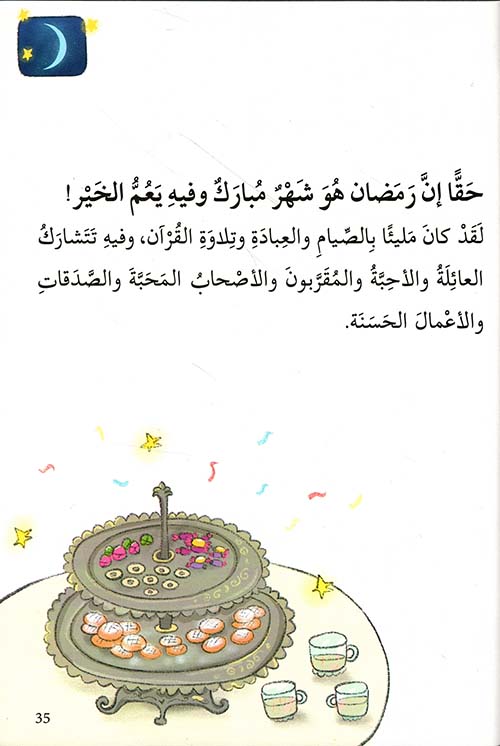 حَقًّا إنَّ رَمَضان هُوَ شَهْرٌ مُبارَكٌ وفيهِ يَعُمُّ الخَيْر!
لَقَدْ كانَ مَليئًا بِالصِّيامِ والعِبادَةِ وتِلاوَةِ القُرْآن، وفيهِ تَتَشارَكُ
العائِلَةُ والأَحِبَّةُ والمُقَرَّبونَ والأَصْحابُ المَحَبَّةَ والصَّدَقاتِ
والأَعْمالَ الحَسَنَة.
35